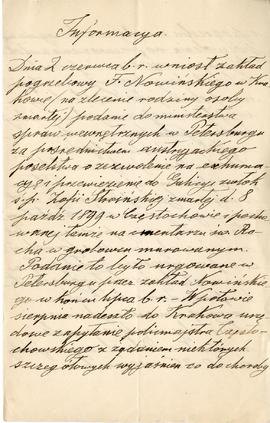 Informacya.
Dnia 2 czerwca b. r. wniósł zakład
pogrzebowy F. Nowińskiego w Kra
kowie (na zlecenie rodziny osoby
zmarłej) podanie do ministerstwa
spraw wewnętrznych w Petersburgu
za pośrednictwem austryackiego
poselstwa o zezwolenie na exhuma
cyę i przewiezienie do Galicyi zwłok
ś. p. Zofii zmarłej d. 8
paźdz 1899 w Częstochowie i pocho
wanej tamże na cmentarzu św. Ro
cha w grobowcu murowanym.
Podanie to było urgowane w
Petersburgu przez zakład Nowińskie
go w końcu lipca b. r. – W połowie
sierpnia nadeszło do Krakowa urzę
dowe zapytanie policmajstra Często
chowskiego z żądaniem niektórych
szczegółowych wyjaśnień co do choroby